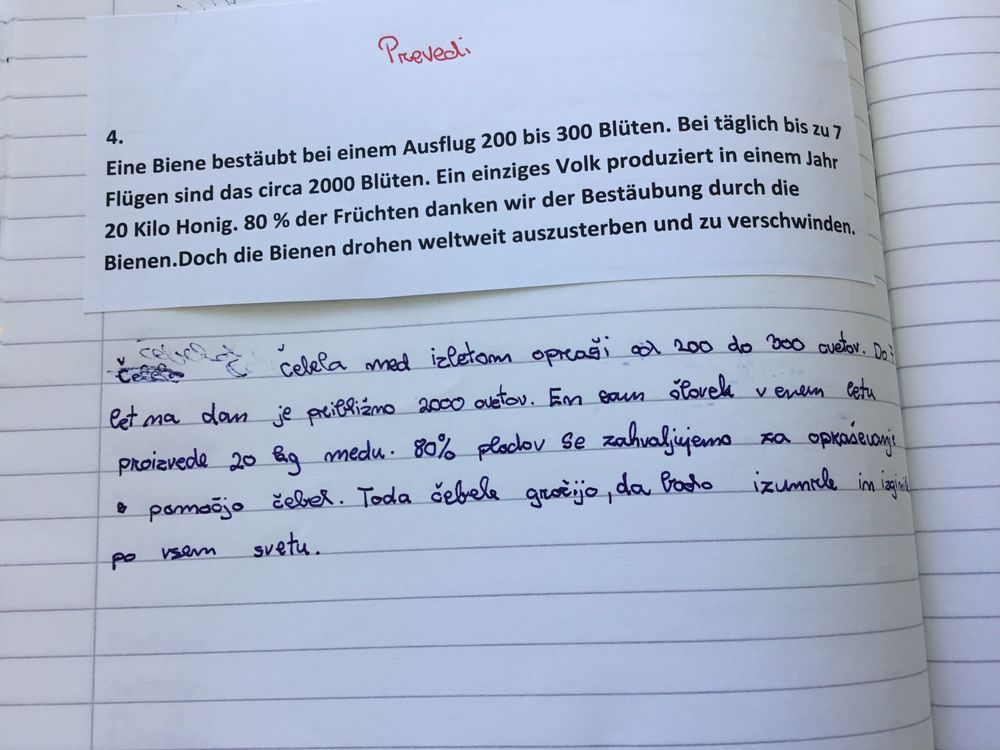 Prevedi
4.
Eine Biene bestäubt bei einem Ausflug 200 bis 300 Blüten. Bei täglich bis zu 7
Flügen sind das circa 2000 Blüten. Ein einziges Volk produziert in einem Jahr
20 Kilo Honig. 80 % der Früchten danken wir der Bestäubung durch die
Bienen.Doch die Bienen drohen weltweit auszusterben und zu verschwinden.
čebela med izletom opraši od 200 do 300 cvetov. Do 7
let na dan je približno 2000 cvetov. En sam človek v enem letu
proizvede 20 kg medu. 80% plodov se zahvaljujemo za opraševanje
s pomočjo čebel. Toda čebele grozijo, da bodo izumrle in
po vsem svetu.